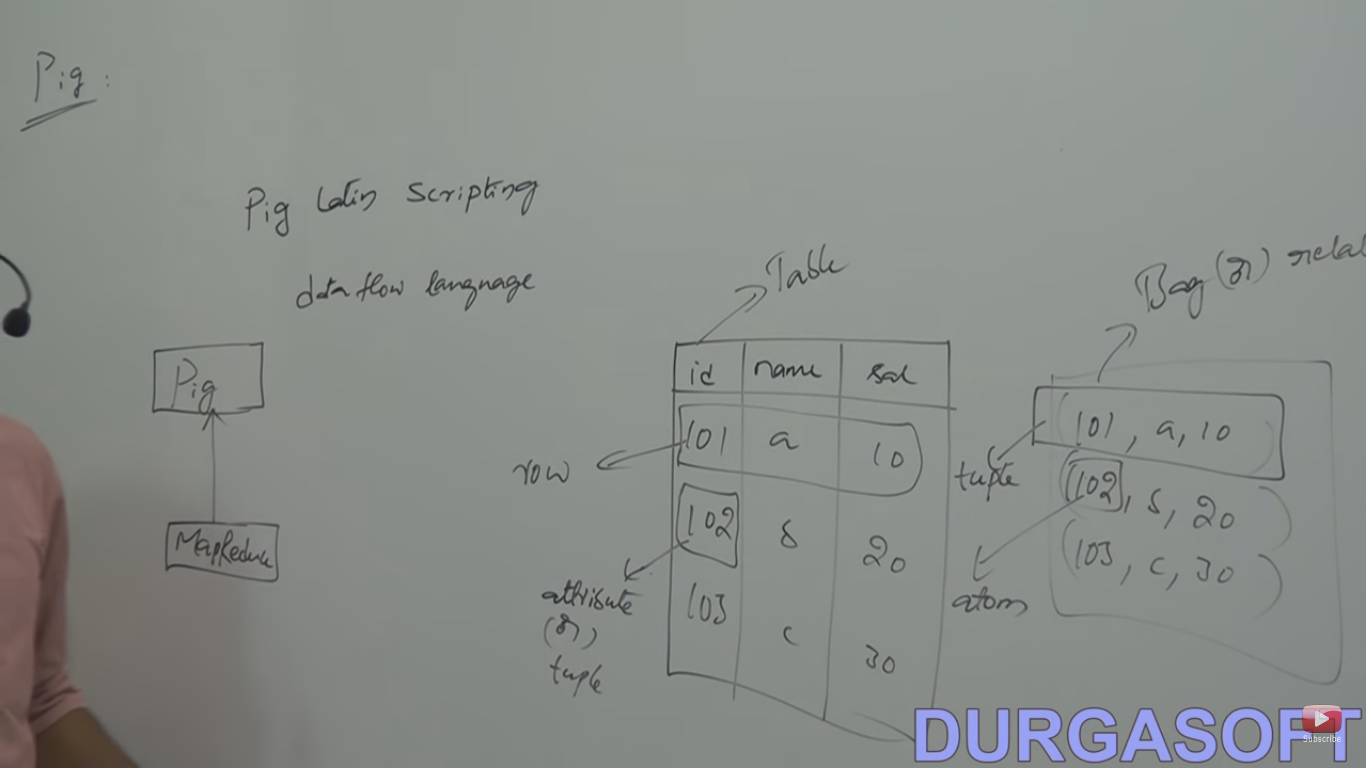 Pig :
Pig Latin Scripting
data flow language
Pig
MapReduce
Table
id name sal
101 a 10
102 b 20
103 c 30
row
attribute
(or)
tuple
Bag (or) relat
(101, a, 10)
(102, b, 20)
(103, c, 30)
tuple
atom
DURGASOFT
Subscribe